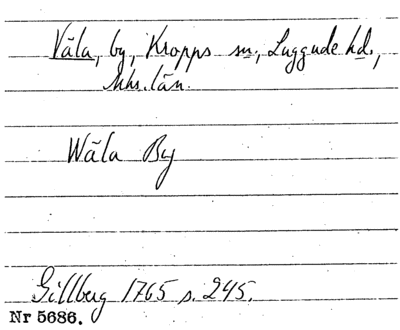 Väla, by, Kropps sn, Luggude hd.,
Mhs. län.
Wäla By
Gillberg 1765 s. 245.
Nr 5686.